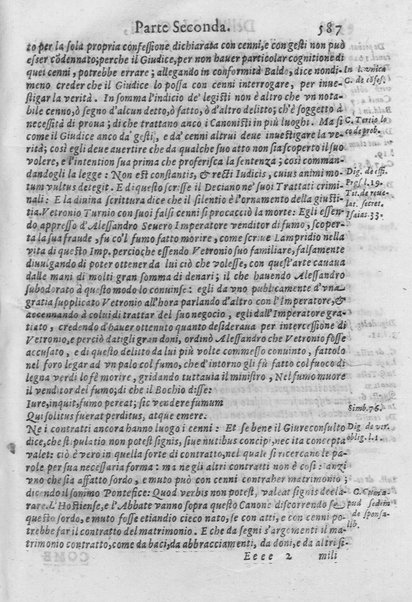 Parte Seconda. 587
to per la sola propria confessione dichiarata con cenni, e con gesti non può
esser cōdennato; perche il Giudice, per non hauer particolar cognitione di
quei cenni, potrebbe errare; allegando in conformità Baldo, dice nondi-
meno creder che il Giudice lo possa con cenni interrogare, per inue-
stigar la verità. In somma l'indicio de' legisti non è altro che vn nota-
bile cenno, ò segno d'alcun detto, ò fatto, ò d'altro delitto; ch'è soggetto à
necessità di proua; di che trattano anco i Canonisti in più luoghi. Ma sì
come il Giudice anco da' gesti, e da' cenni altrui deue inuestigare la ve-
rità; così egli deue auertire che da qualche suo atto non sia scoperto il suo
volere, e l'intention sua prima che proferisca la sentenza; così comman-
dandogli la legge: Non est constantis, & recti Iudicis, cuius animi mo-
tum vultus detegit. E di questo scrisse il Deciano ne' suoi Trattati crimi-
nali: E la diuina scrittura dice che il silentio è l'ornamento della giusti-
tia. Vetronio Turnio con suoi falsi cenni si procacciò la morte: Egli essen-
do appresso d'Alessandro Seuero Imperatore venditor di fumo, scoper-
ta la sua fraude, fu co'l fumo fatto morire, come scriue Lampridio nella
vita di questo Imp. percioche essendo Vetronio suo familiare, falsamente
diuulgando di poter ottener da lui ciò che volesse, con quest'arte cauaua
dalle mani di molti gran somma di denari; il che hauendo Alessandro
subodorato à questo modo lo conuinse: egli da vno publicamente d'vna
gratia supplicato Vetronio all'hora parlando d'altro con l'Imperatore, &
accennando à colui di trattar del suo negocio, egli dall'Imperatore gra-
tiato, credendo d'hauer ottenuto quanto desideraua per intercessione di
Vetronio, e perciò datigli gran doni, ordinò Alessandro che Vetronio fosse
accusato, e di questo delitto da lui più volte commesso conuinto, fattolo
nel foro legar ad vn palo col fumo, che d'intorno gli fù fatto col fuoco di
legna verdi lo fè morire, gridando tuttauia il ministro, Nel fumo muore
il venditor del fumo; di che il Bochio disse:
Iure, inquit, fumo pereat; sic vendere fumum
Qui solitus fuerat perditus, atque emere.
Ne i contratti ancora hanno luogo i cenni: Et se bene il Giureconsulto
dice, che stipulatio non potest signis, siue nutibus concipi, nec ita concepta
valet: ciò è vero in quella sorte di contratto, nel quale si ricercano le pa-
role per sua necessaria forma; ma negli altri contratti non è così: anzi
vno che sia affatto sordo, e muto può con cenni contraher matrimonio;
dicendo il sommo Pontefice: Quod verbis non potest, valeat signis decla-
rare. L'Hostiense, e l'Abbate vanno sopra questo Canone discorrendo se
questo sordo, e muto fosse etiandio cieco nato, se con atti, e con cenni po-
trebbe far il contratto del matrimonio. E che da segni s'argomenti il ma-
trimonio contratto, come da baci, da abbracciamenti, da doni, e da altri si-
Eeee 2 mili
In l. vnica
C. de cōfes.
C. Tertio lo
co de prob.
Dig. de offi.
Præs. l. 19.
Isaiæ. 33.
Simb. 76.
Dig. de ver.
obligl. l. 1.
C. Cum a-
pud sedem
de sponsa-
lib.